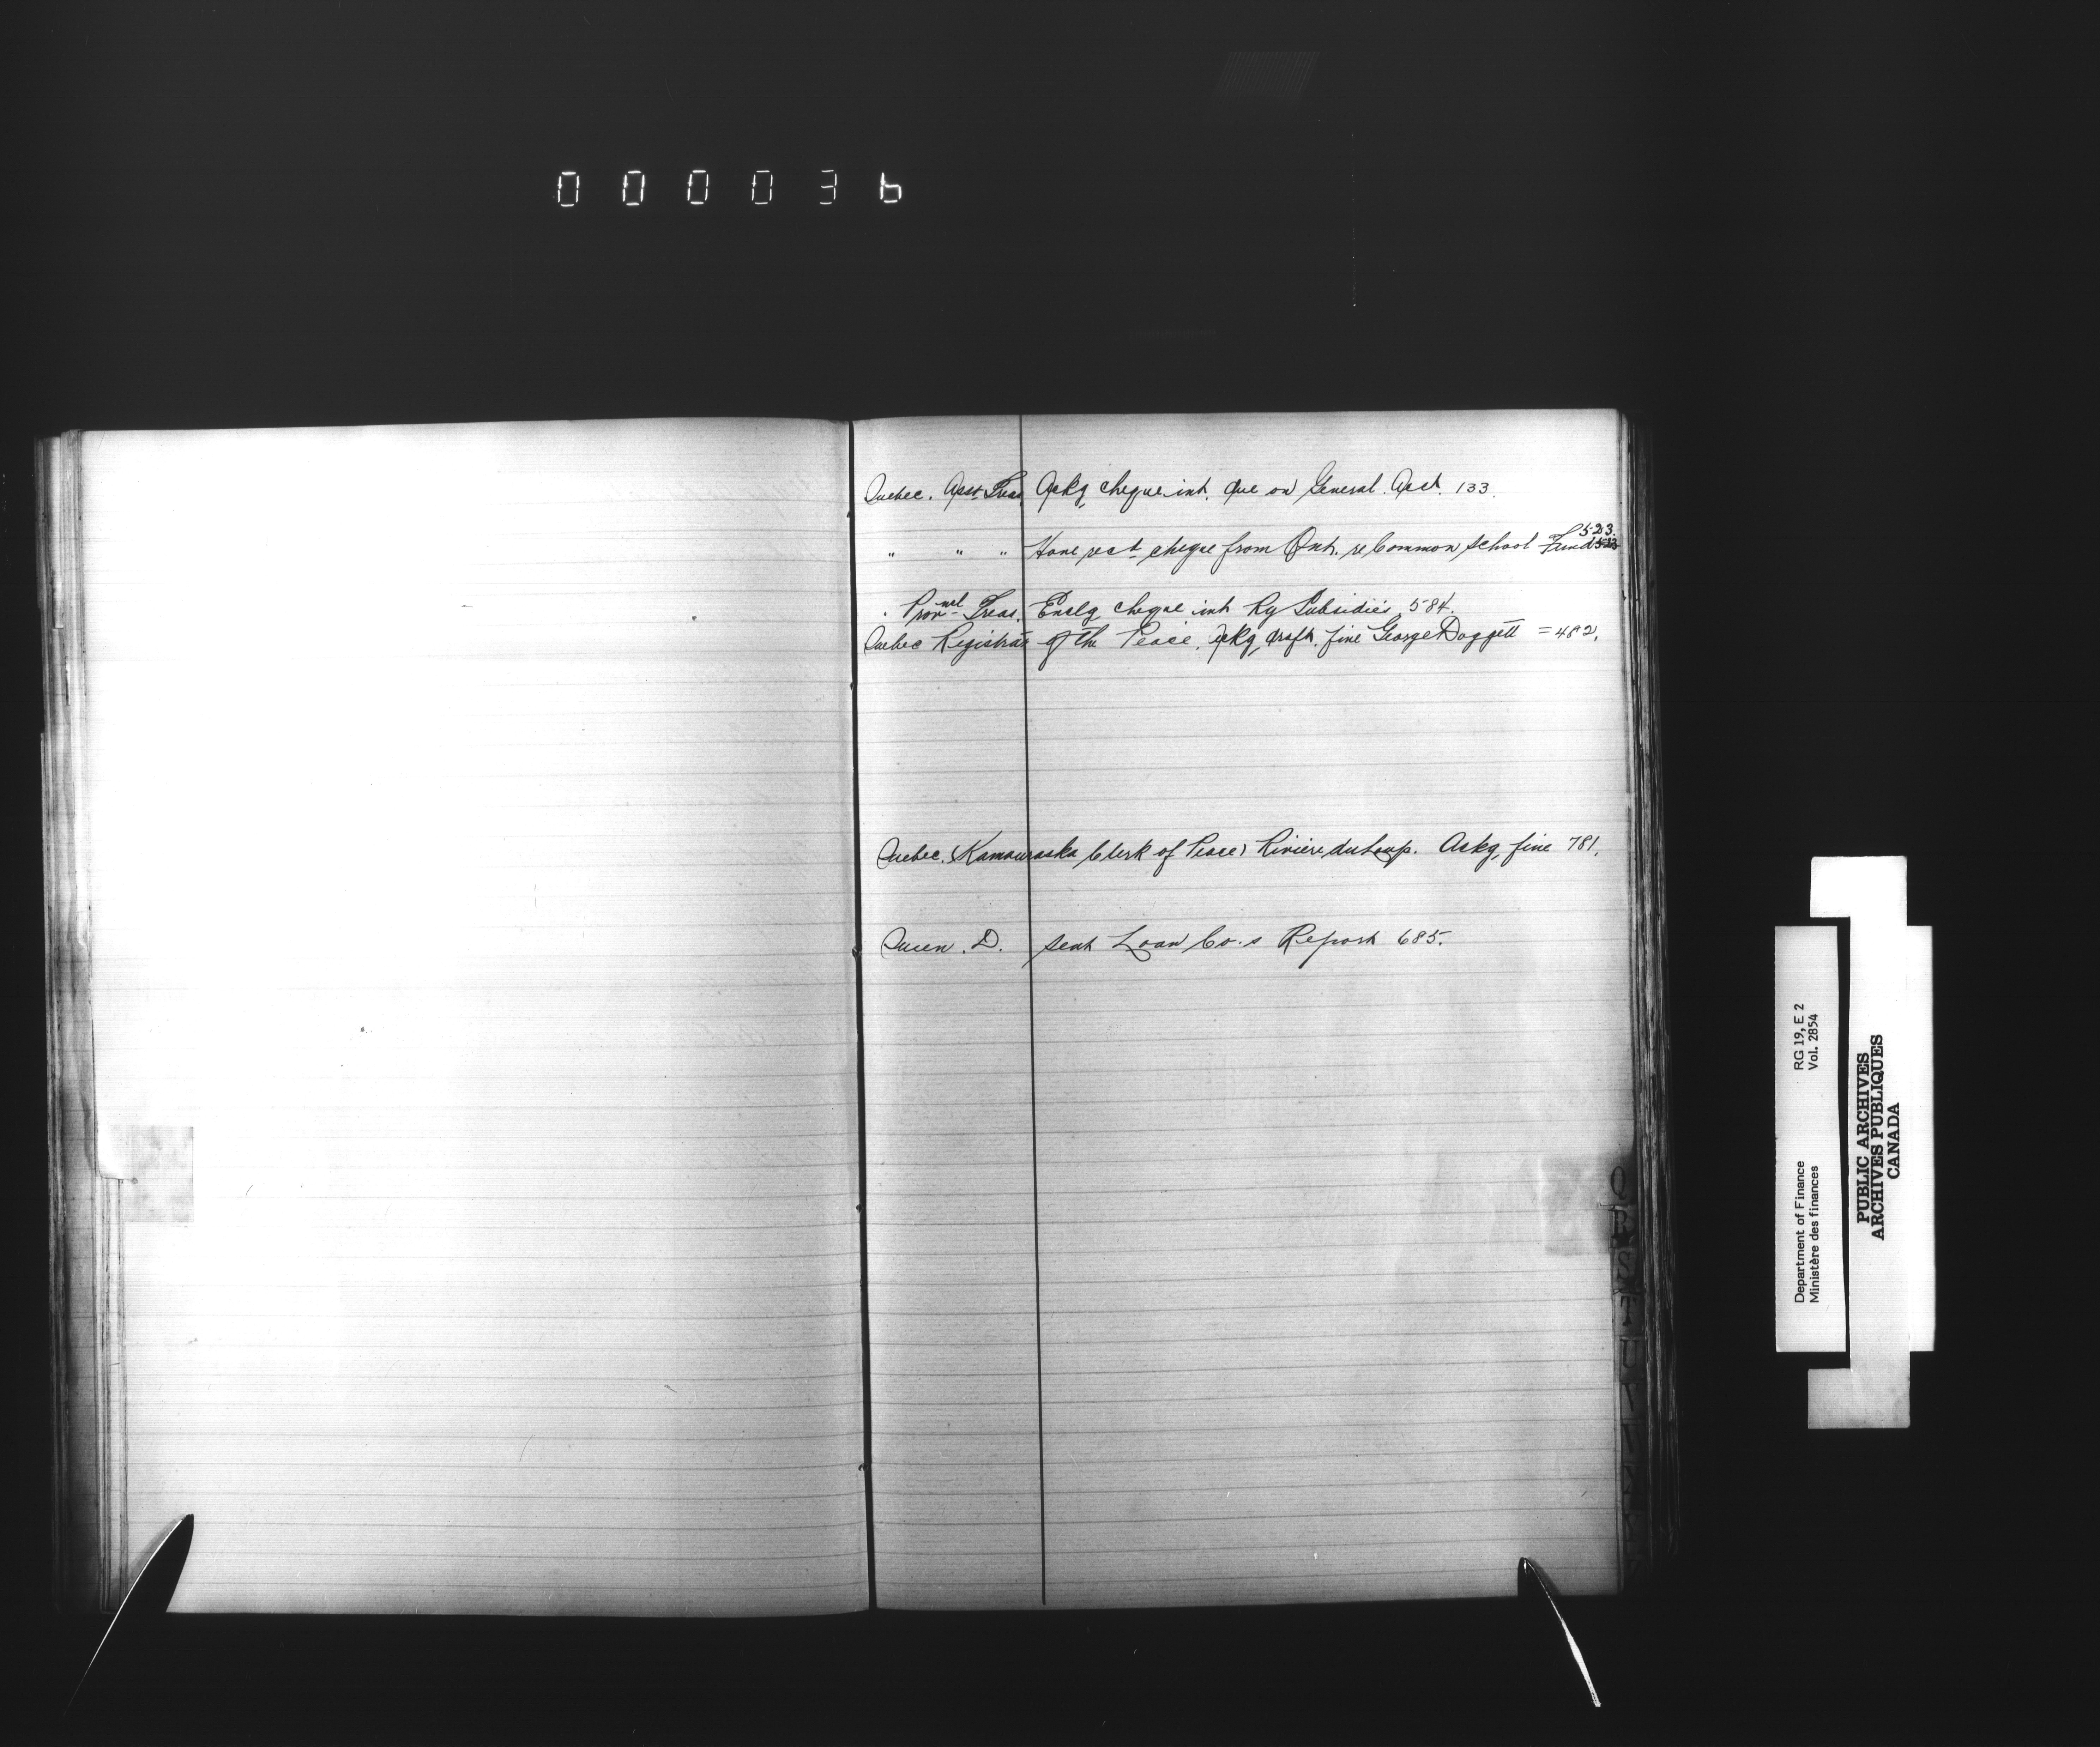 00003b
Quebec. Asst Treas. Ackg, cheque int. due on General Acct. 133.
" " " Have rect cheque from Ont. re Common School Fund 523.
" Provnal Treas. Enclg cheque int Ry Subsidies 584.
Quebec Registrar of the Peace. Ackg, draft. fine George Doggett = 482.
Quebec. (Kamouraska Clerk of Peace) Riviere du Loup. Ackg, fine 781.
Queen. D. sent Loan Co.s Report 685.
Q
R
S
T
U
RG 19, E 2
Vol. 2854
Department of Finance
Ministère des finances
PUBLIC ARCHIVES
ARCHIVES PUBLIQUES
CANADA